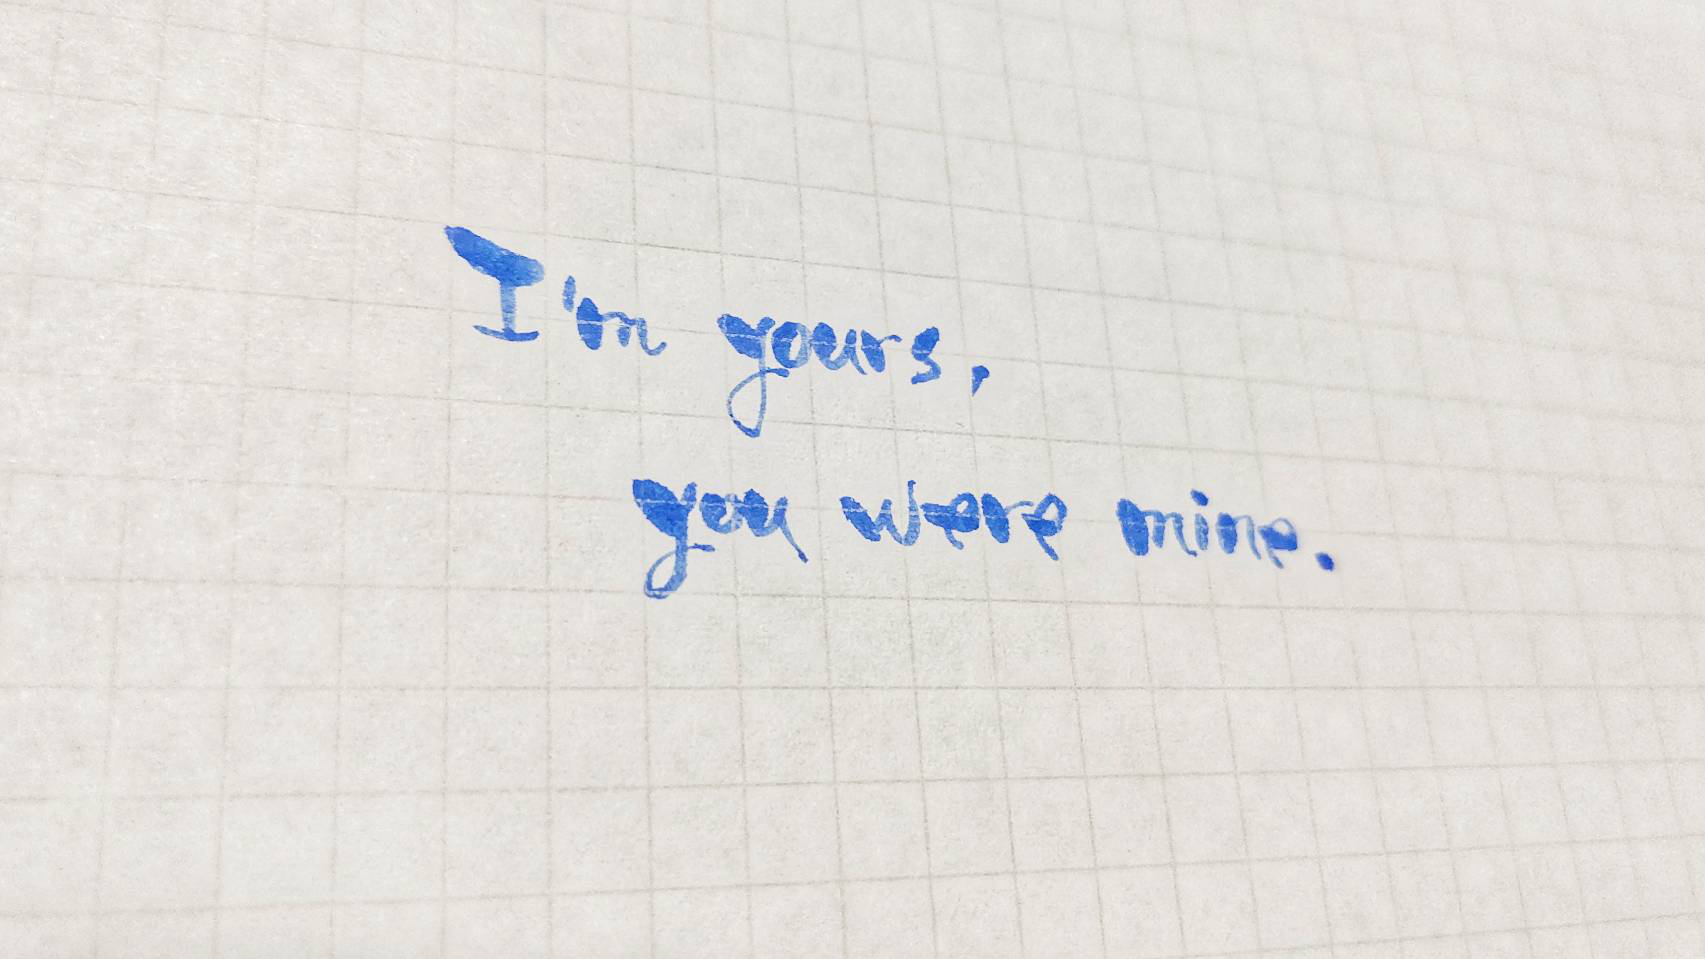 I'm yours,
you were mine.